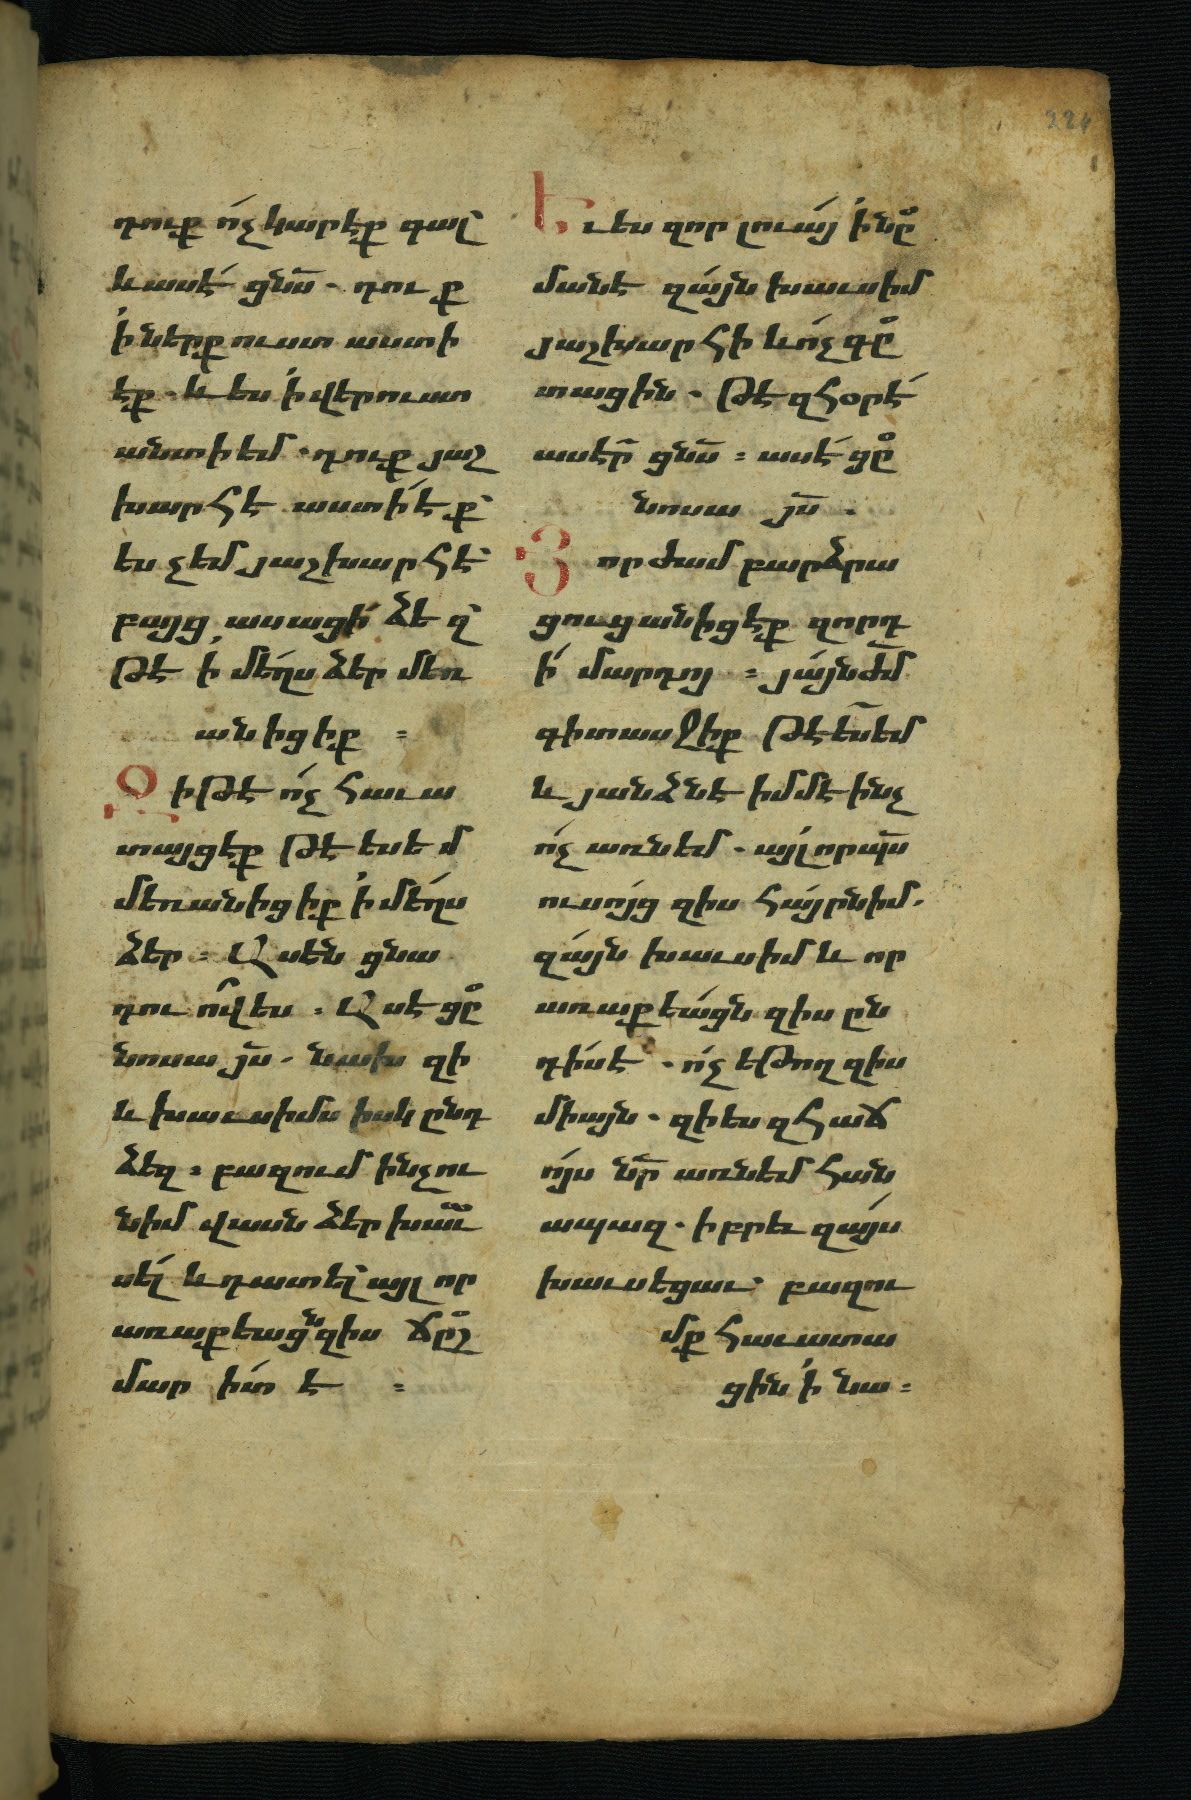 224
դուք ո՛չ կարէք գալ՝
և ասէ՛ ցնս̃ ․ դուք
ի՛ ներքուստ աստի
էք ․ և ես ի՛ վերուստ
անտի եմ ․ դուք յաշ
խարհէ աստի՛ էք՝
ես չեմ յաշխարհէ՝
բայց ասացի՛ ձեզ՝
թէ ի՛ մեղս ձեր մեռ
անիցիք ։
Զի թէ ո՛չ հաւա
տայցէք թէ ես եմ
մեռանիցիք ի՛ մեղս
ձեր ։ Ասեն ցնա
դու ո՞վ ես ։ Ասէ ցը̊
նոսա յս̃ ․ նախ զի
և խաւսիմս իսկ ընդ
ձեզ ։ բազում ինչ ու
նիմ վասն ձեր խաւ
սել՛ և դատել՝ այլ որ
առաքեացն զիս ճը̊շ
մարիտ է ։
Եւ ես զոր լուայ՛ ի՛ նը̊
մանէ զա՛յն խաւսիմ
յաշխարհի և ո՛չ գը̊
տացին ․ թէ զհօրէ՛
ասէր̃ ցնս̃ ։ ասէ՛ ցը̊
նոսա յս̃ ․
Յորժամ բարձրա
ցուցանիցէք զորդ
ի՛ մարդոյ ։ յա՛յնժմ̃
գիտասջիք թէ ես̃ եմ
և յանձնէ իմմէ ինչ
ո՛չ առնեմ ․ այլ՛ որպս̃
ուսո՛յց զիս հա՛յրն իմ ․
զա՛յն խաւսիմ և որ
առաքեա՛ցն զիս ըն
դի՛ս է ․ ո՛չ եթող զիս
միայն ․ զի ես զհաճ
ո՛յս նր̃ առնեմ հան
ապազ ․ իբրև զայ՛ս
խաւսեցաւ՝ բազու
մք հաւատա
ցին ի՛ նա ։